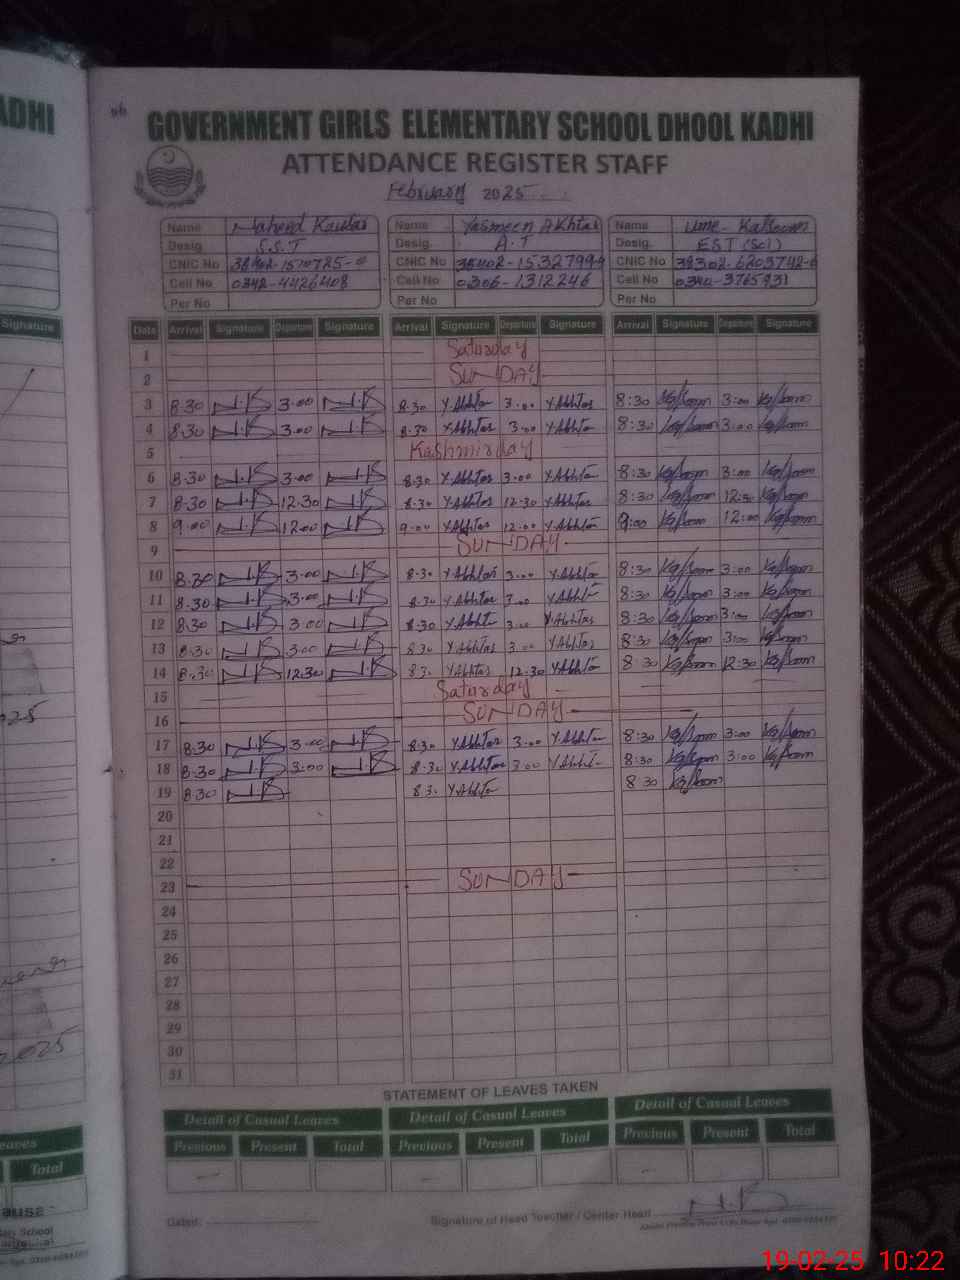 ADHI
GOVERNMENT GIRLS ELEMENTARY SCHOOL DHOOL KADHI
ATTENDANCE REGISTER STAFF
February 2025
Name Naheed Kausar Name Yasmeen Akhtar Name Ume-Kalsoom
Desig S.S.T Desig. A.T Desig. EST (Sci)
CNIC No CNIC No CNIC No
Cell No 0342-4426408 Cell No 0306-1312246 Cell No 0340-3765931
Per No Per No Per No
Signature
Date Arrival Signature Departure Signature Arrival Signature Departure Signature Arrival Signature Departure Signature
1 Saturday
2 SUNDAY
3 8.30 N.K 3.00 N.K 8.30 Y Akhtar 3.00 Y Akhtar 8:30 3:00
4 8.30 N.K 3.00 N.K 8.30 Y Akhtar 3.00 Y Akhtar 8:30 3:00
5 Kashmir day
6 8.30 N.K 3.00 N.K 8.30 Y Akhtar 3.00 Y Akhtar 8:30 3:00
7 8.30 N.K 12.30 N.K 8.30 Y Akhtar 12.30 Y Akhtar 8:30 12:30
8 9.00 N.K 12.00 N.K 9.00 Y Akhtar 12.00 Y Akhtar 9:00 12:00
9 SUNDAY
10 8.30 N.K 3.00 N.K 8.30 Y Akhtar 3.00 Y Akhtar 8:30 3:00
11 8.30 N.K 3.00 N.K 8.30 Y Akhtar 3.00 Y Akhtar 8:30 3:00
12 8.30 N.K 3.00 N.K 8.30 Y Akhtar 3.00 Y Akhtar 8:30 3:00
13 8.30 N.K 3.00 N.K 8.30 Y Akhtar 3.00 Y Akhtar 8:30 3:00
14 8.30 N.K 12.30 N.K 8.30 Y Akhtar 12.30 Y Akhtar 8:30 12:30
15 Saturday
16 SUNDAY
17 8.30 N.K 3.00 N.K 8.30 Y Akhtar 3.00 Y Akhtar 8:30 3:00
18 8.30 N.K 3.00 N.K 8.30 Y Akhtar 3.00 Y Akhtar 8:30 3:00
19 8.30 N.K 8.30 Y Akhtar 8:30
20
21
22
23 SUNDAY
24
25
26
27
28
29
30
31
2025
STATEMENT OF LEAVES TAKEN
Detail of Casual Leaves Detail of Casual Leaves Detail of Casual Leaves
Previous Present Total Previous Present Total Previous Present Total
Total
Dated: Signature of Head Teacher / Center Head N.K
19-02-25 10:22